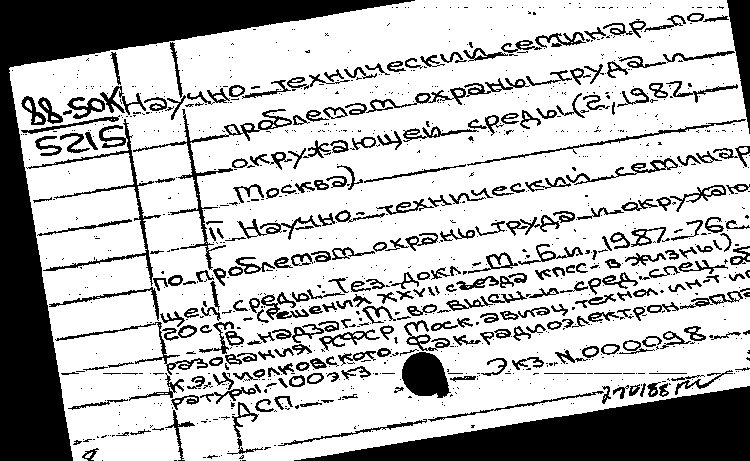 88-50К Научно-технический семинар по
5215
проблемам охраны труда и
окружающей среды (2; 1987;
Москва)
II Научно-технический семинар
по проблемам охраны труда и окружаю
щей среды: Тез. докл. -М.: Б.и., 1987.-76с.:
20см. -(Решения XXVII съезда КПСС - в жизнь!)
В надзаг.: М-во высш. и сред. спец. об
разования РСФСР, Моск. авиац. технол. ин-т им.
К.Э. Циолковского, Фак. радиоэлектрон. аппа
ратуры.-100экз.
Экз. N.000098
ДСП.